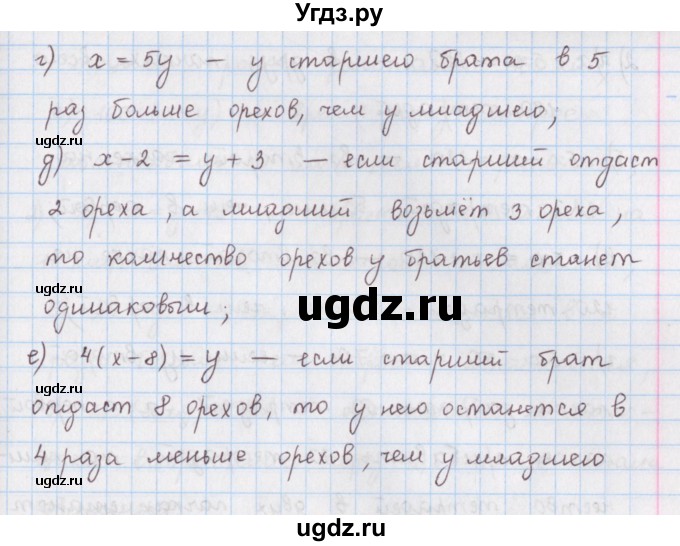 Угдз.ру
г) x = 5y — у старшего брата в 5
раз больше орехов, чем у младшего;
ugdz.ru
ugdz.ru
д) x - 2 = y + 3 — если старший отдаст
2 ореха, а младший возьмёт 3 ореха,
то количество орехов у братьев станет
ugdz.ru
ugdz.ru
одинаковым;
ugdz.ru
е) 4(x - 8) = y — если старший брат
отдаст 8 орехов, то у него останется в
4 раза меньше орехов, чем у младшего
ugdz.ru
ugdz.ru
ugdz.ru